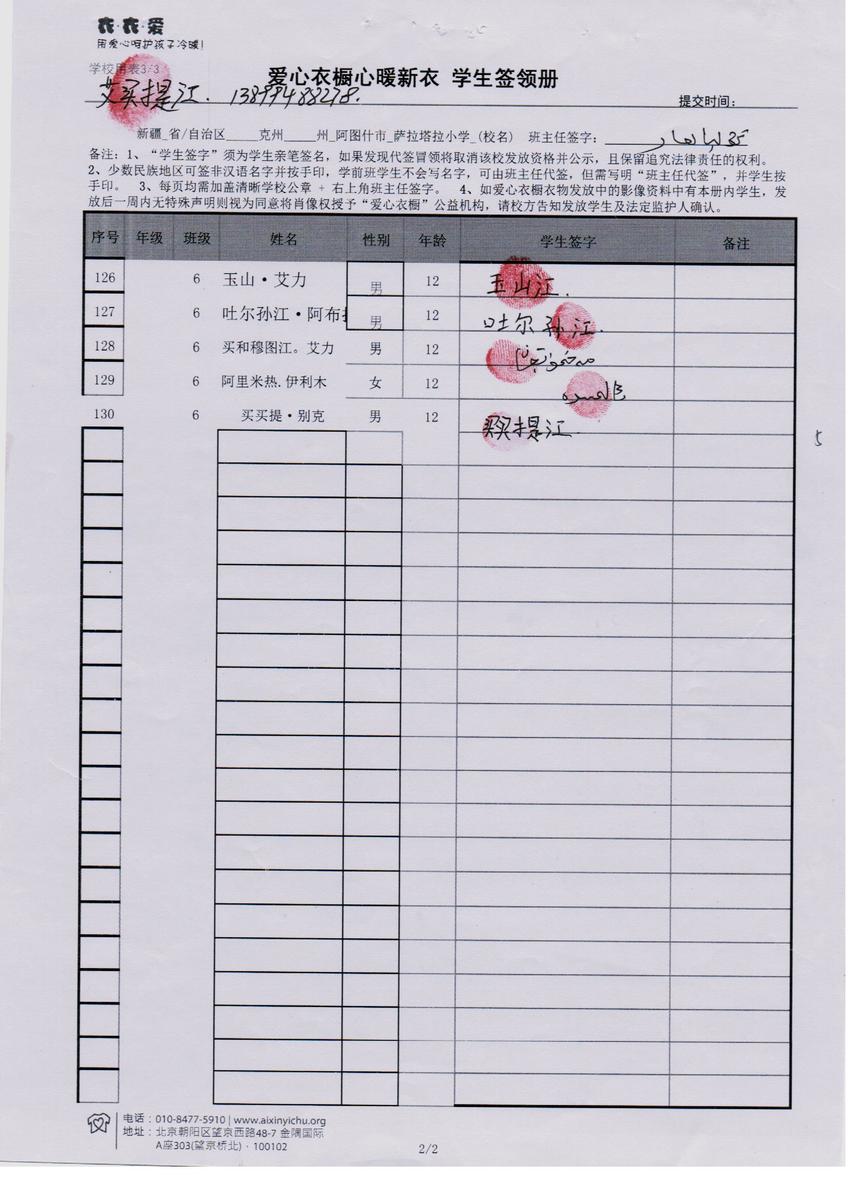 衣·衣·爱
用爱心呵护孩子冷暖!
学校用表3/3
爱心衣橱心暖新衣 学生签领册
艾买提江. 13899488278.
提交时间:
新疆_省/自治区_____克州_____州_阿图什市_萨拉塔拉小学_(校名) 班主任签字:
备注:1、“学生签字”须为学生亲笔签名,如果发现代签冒领将取消该校发放资格并公示,且保留追究法律责任的权利。
2、少数民族地区可签非汉语名字并按手印,学前班学生不会写名字,可由班主任代签,但需写明“班主任代签”,并学生按
手印。 3、每页均需加盖清晰学校公章 + 右上角班主任签字。 4、如爱心衣橱衣物发放中的影像资料中有本册内学生,发
放后一周内无特殊声明则视为同意将肖像权授予“爱心衣橱”公益机构,请校方告知发放学生及法定监护人确认。
序号 年级 班级 姓名 性别 年龄 学生签字 备注
126 6 玉山·艾力 男 12 玉山江.
127 6 吐尔孙江·阿布 男 12 吐尔孙江.
128 6 买和穆图江。艾力 男 12
129 6 阿里米热.伊利木 女 12
130 6 买买提·别克 男 12 买买提江.
5
电话:010-8477-5910 | www.aixinyichu.org
地址:北京朝阳区望京西路48-7 金隅国际
A座303(望京桥北)·100102
2/2